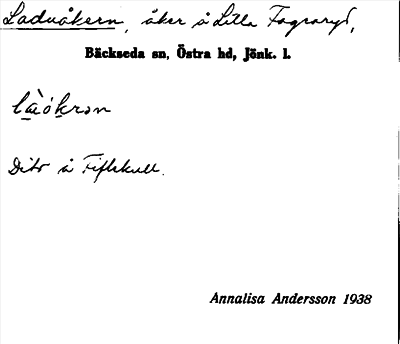 Laduåkern, åker å Lilla Fagraryd,
Bäckseda sn, Östra hd, Jönk. l.
Dito å Fiflekull.
Annalisa Andersson 1938